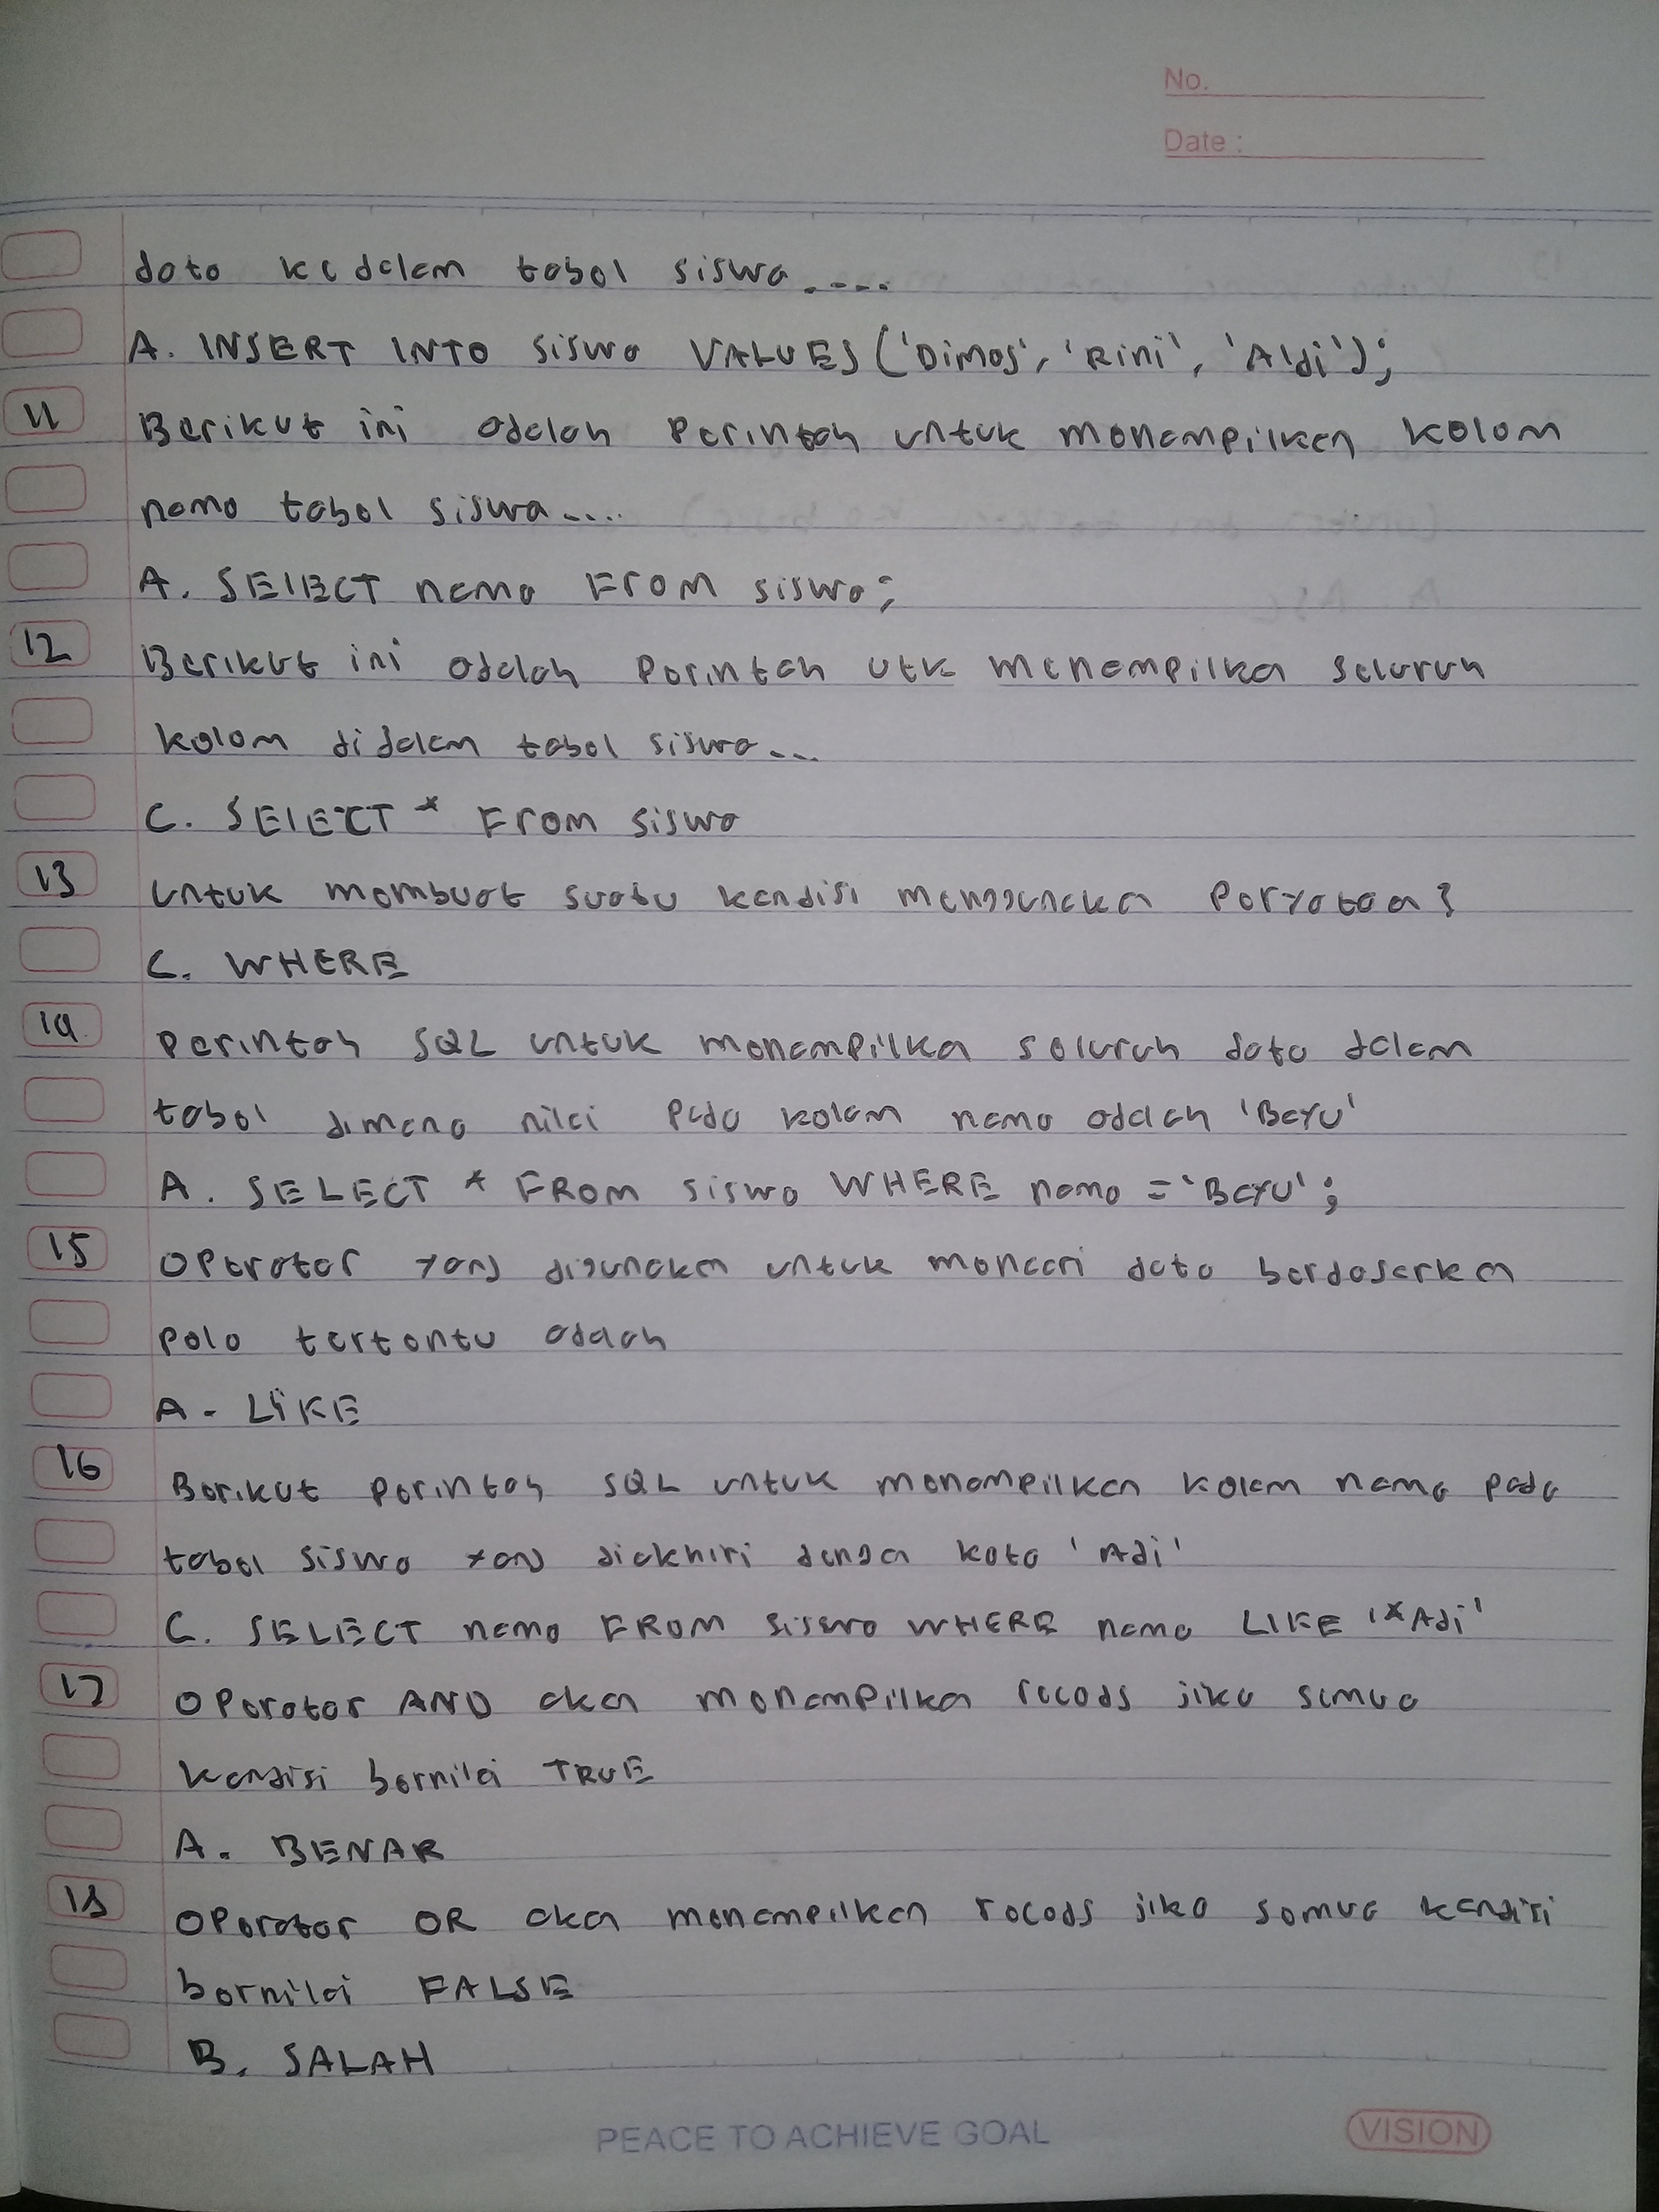 No.
Date :
data kedalam tabel siswa....
A. INSERT INTO siswa VALUES ('Dimas', 'Rini', 'Aldi');
11 Berikut ini adalah perintah untuk menampilkan kolom
nama tabel siswa....
A. SElECT nama FroM siswa;
12 Berikut ini adalah perintah utk menampilka seluruh
kolom didalam tabel siswa...
C. SElECT * From siswa
13 untuk membuat suatu kondisi menggunakan Peryataan?
C. WHERE
14. Perintah SQL untuk menampilka seluruh data dalam
tabel dimana nilai pada kolom nama adalah 'Bayu'
A. SELECT * FROM siswa WHERE nama = 'Bayu';
15 Operator yang digunakan untuk mencari data berdasarkan
pola tertentu adalah
A. LiKE
16 Berikut perintah SQL untuk menampilkan kolom nama pada
tabel siswa yang diakhiri dengan kata 'Adi'
C. SELECT nama FROM siswa WHERE nama LIKE '*Adi'
17 Operator AND akan menampilkan recods jika semua
kondisi bernilai TRUE
A. BENAR
18 Operator OR akan menampilkan recods jika semua kondisi
bernilai FALSE
B. SALAH
PEACE TO ACHIEVE GOAL
VISION